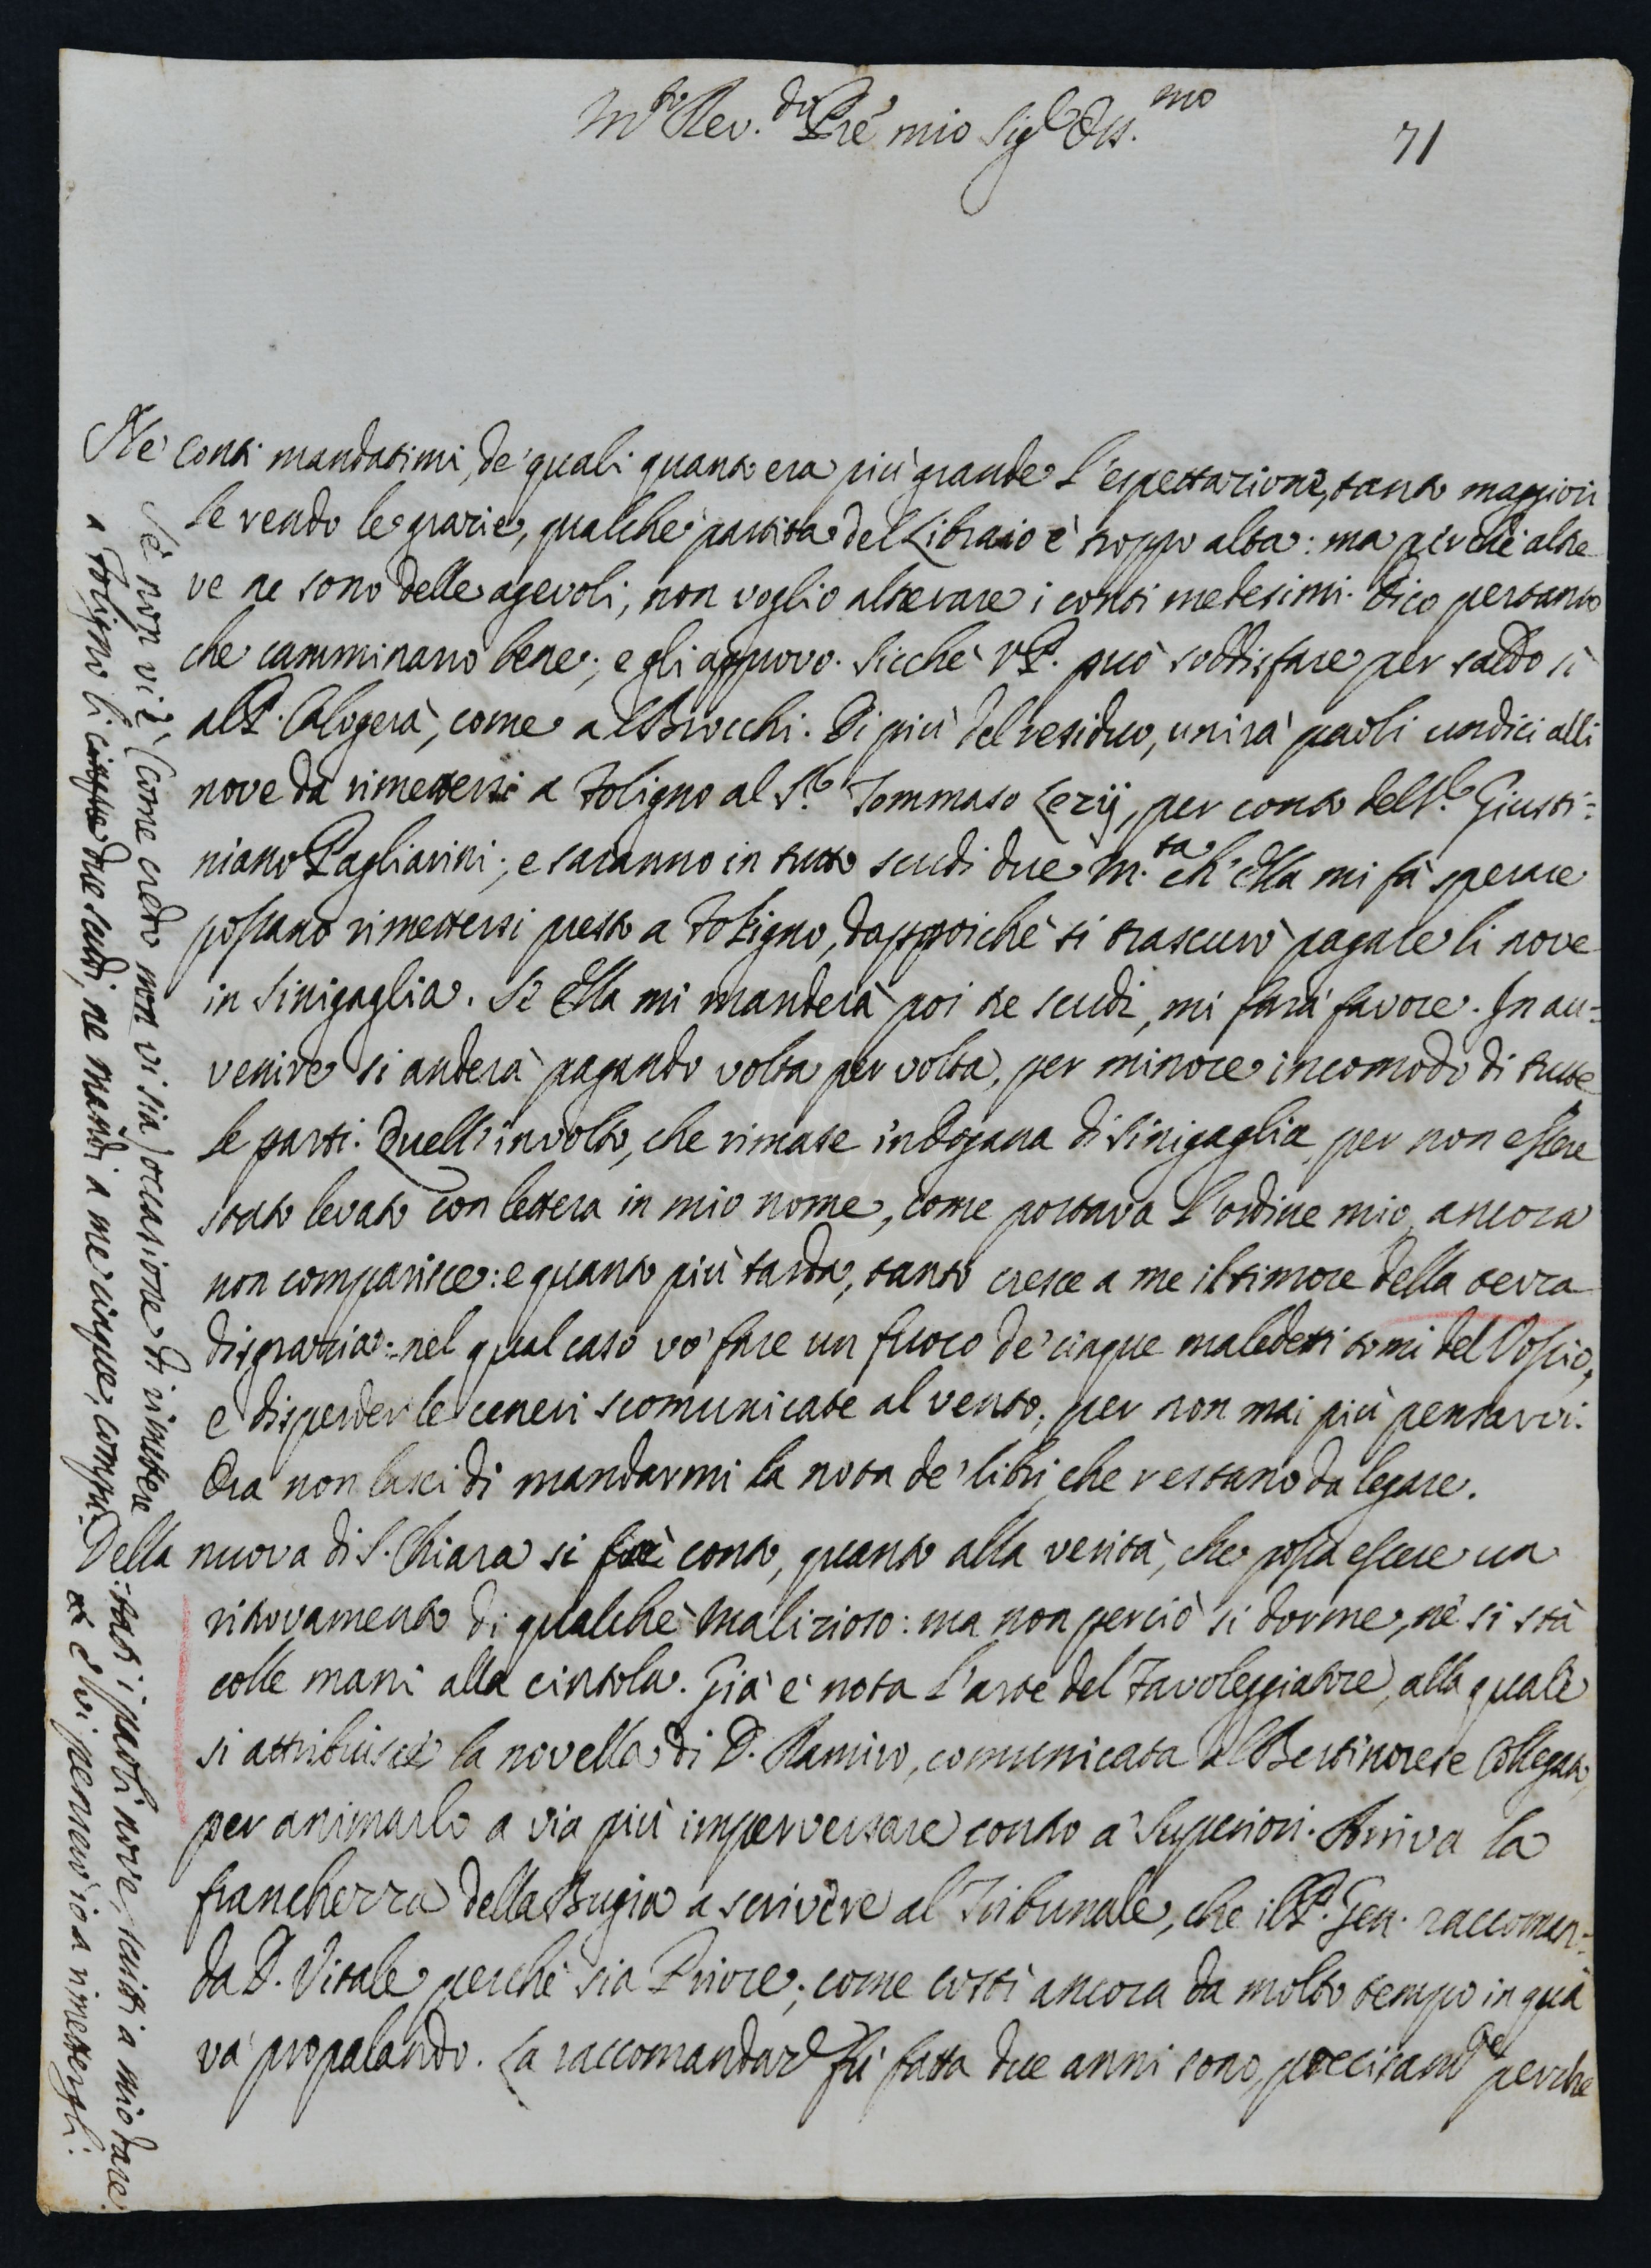 M.to Rev.do Pre' mio Sig.e Oss.mo
71
Ne' conti mandatimi, de' quali quanto era più grande l'espettazione, tanto maggiori
le rendo le grazie, qualche partita del Libraio è troppo alta: ma perchè altre
ve ne sono delle agevoli, non voglio alterare i conti medesimi. Dico pertanto
che camminano bene; e gli approvo. Sicchè V.P. può soddisfare per saldo sì
al P. Calogerà, come al Brocchi. Di più del residuo, unirà paoli undici alli
nove da rimettersi a Foligno al S.e Tommaso Lezij, per conto del S.e Giusti=
niano Pagliarini; e saranno in tutto scudi due m.ta ch'Ella mi fà sperare
possano rimettersi presto a Foligno, dappoichè si trascurò pagare li nove
in Sinigaglia. Se Ella mi manderà poi tre scudi, mi farà favore. In av=
venire si anderà pagando volta per volta, per minore incomodo di tutte
le parti. Quell'involto, che rimase in Dogana di Sinigaglia, per non essere
stato levato con lettera in mio nome, come portava l'ordine mio, ancora
non comparisce: e quanto più tarda, tanto cresce a me il timore della terza
disgrazia: nel qual caso vo' fare un fuoco de' cinque maledetti tomi del Vossio,
e disperder le ceneri scomunicate al vento, per non mai più pensarvi.
Ora non lasci di mandarmi la nota de' libri, che restano da legare.
Della nuova di S. Chiara si fae conto, quanto alla verità, che possa essere un
ritrovamento di qualche malizioso: ma non perciò si dorme, nè si stà
colle mani alla cintola. Già è nota l'arte del Favoleggiatore, alla quale
si attribuisce la novella di D. Ramiro, comunicata al Bertinorese Collegato,
per animarlo a via più imperversare contro a' Superiori. Arriva la
francherra della Bugia a scrivere al Tribunale, che il P. Gen. raccoman=
da D. Vitale perchè sia Priore; come costì ancora da molto tempo in quà
và propalando. La raccomandaz.e fù fatta due anni sono, precisam.te perchè
Se non vi è (come credo non vi sia) occasione di rimettere
a Foligno li cinque due scudi, ne mandi a me cinque, compu=
=tati i paoli nove, scritti a mio dare.
et e vi penserò io a rimettergli.